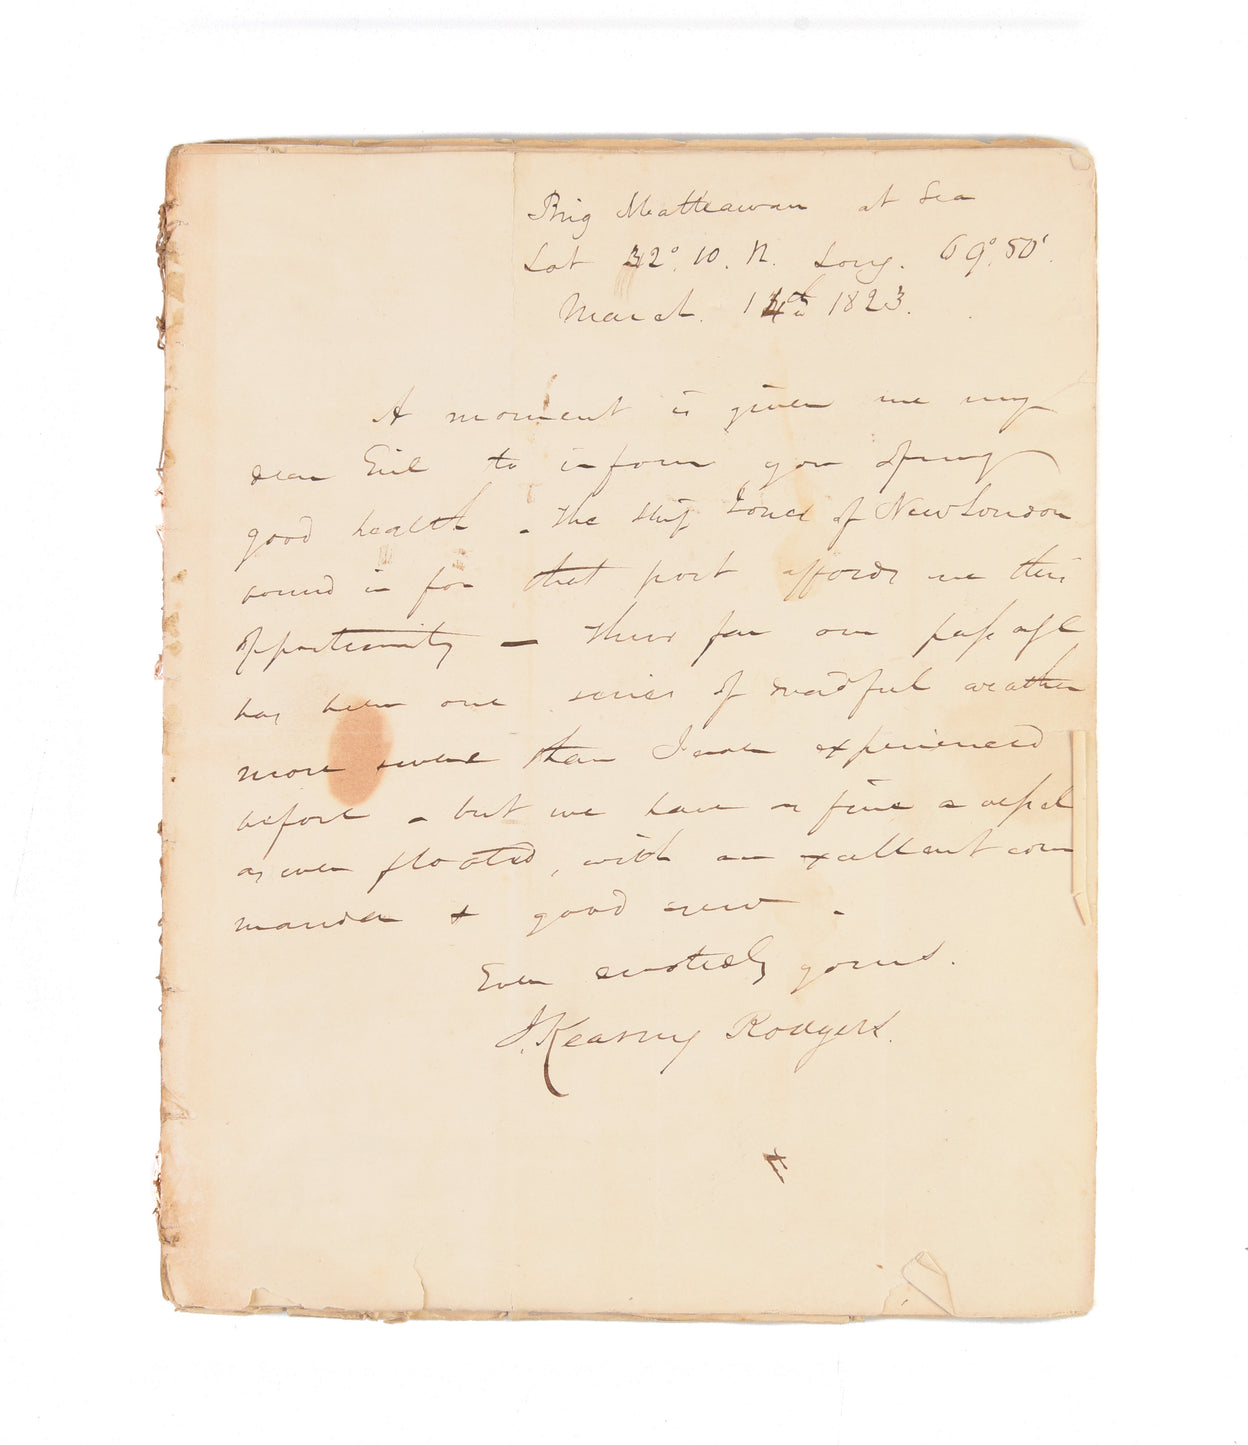 Brig Matteawan at Sea
Lat 32°. 10. N. Long. 69°. 50'.
March. 14th 1823.
A moment is given me my
dear to inform you of my
good health - The Ship Jones of New London
bound in for that port affords me this
opportunity - Thus far our passage
has been one series of dreadful weather
more severe than I ever experienced
before - but we have as fine a vessel
as ever floated, with an excellent com
mander & good crew -
Ever devotedly yours.
J. Kearny Rodgers.